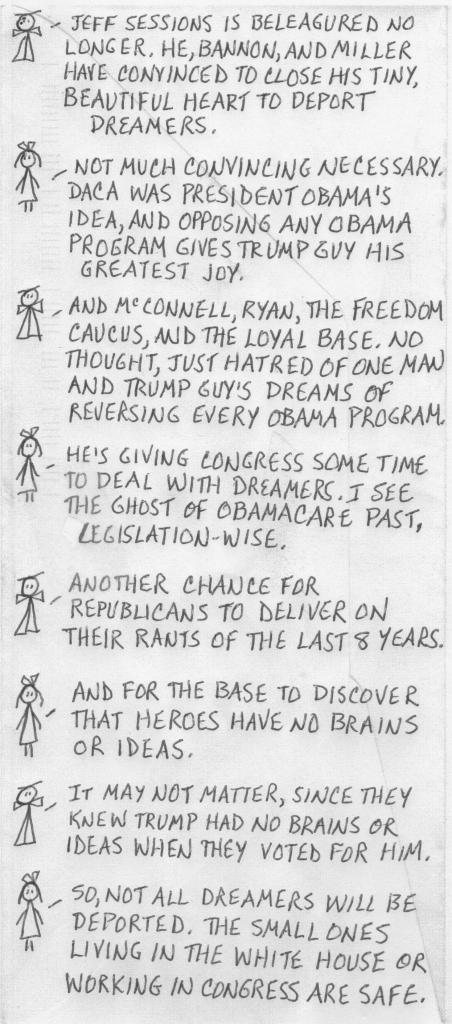 JEFF SESSIONS IS BELEAGURED NO
LONGER. HE, BANNON, AND MILLER
HAVE CONVINCED TO CLOSE HIS TINY,
BEAUTIFUL HEART TO DEPORT
DREAMERS.
NOT MUCH CONVINCING NECESSARY.
DACA WAS PRESIDENT OBAMA'S
IDEA, AND OPPOSING ANY OBAMA
PROGRAM GIVES TRUMP GUY HIS
GREATEST JOY.
AND McCONNELL, RYAN, THE FREEDOM
CAUCUS, AND THE LOYAL BASE. NO
THOUGHT, JUST HATRED OF ONE MAN
AND TRUMP GUY'S DREAMS OF
REVERSING EVERY OBAMA PROGRAM.
HE'S GIVING CONGRESS SOME TIME
TO DEAL WITH DREAMERS. I SEE
THE GHOST OF OBAMACARE PAST,
LEGISLATION-WISE.
ANOTHER CHANCE FOR
REPUBLICANS TO DELIVER ON
THEIR RANTS OF THE LAST 8 YEARS.
AND FOR THE BASE TO DISCOVER
THAT HEROES HAVE NO BRAINS
OR IDEAS.
IT MAY NOT MATTER, SINCE THEY
KNEW TRUMP HAD NO BRAINS OR
IDEAS WHEN THEY VOTED FOR HIM.
SO, NOT ALL DREAMERS WILL BE
DEPORTED. THE SMALL ONES
LIVING IN THE WHITE HOUSE OR
WORKING IN CONGRESS ARE SAFE.